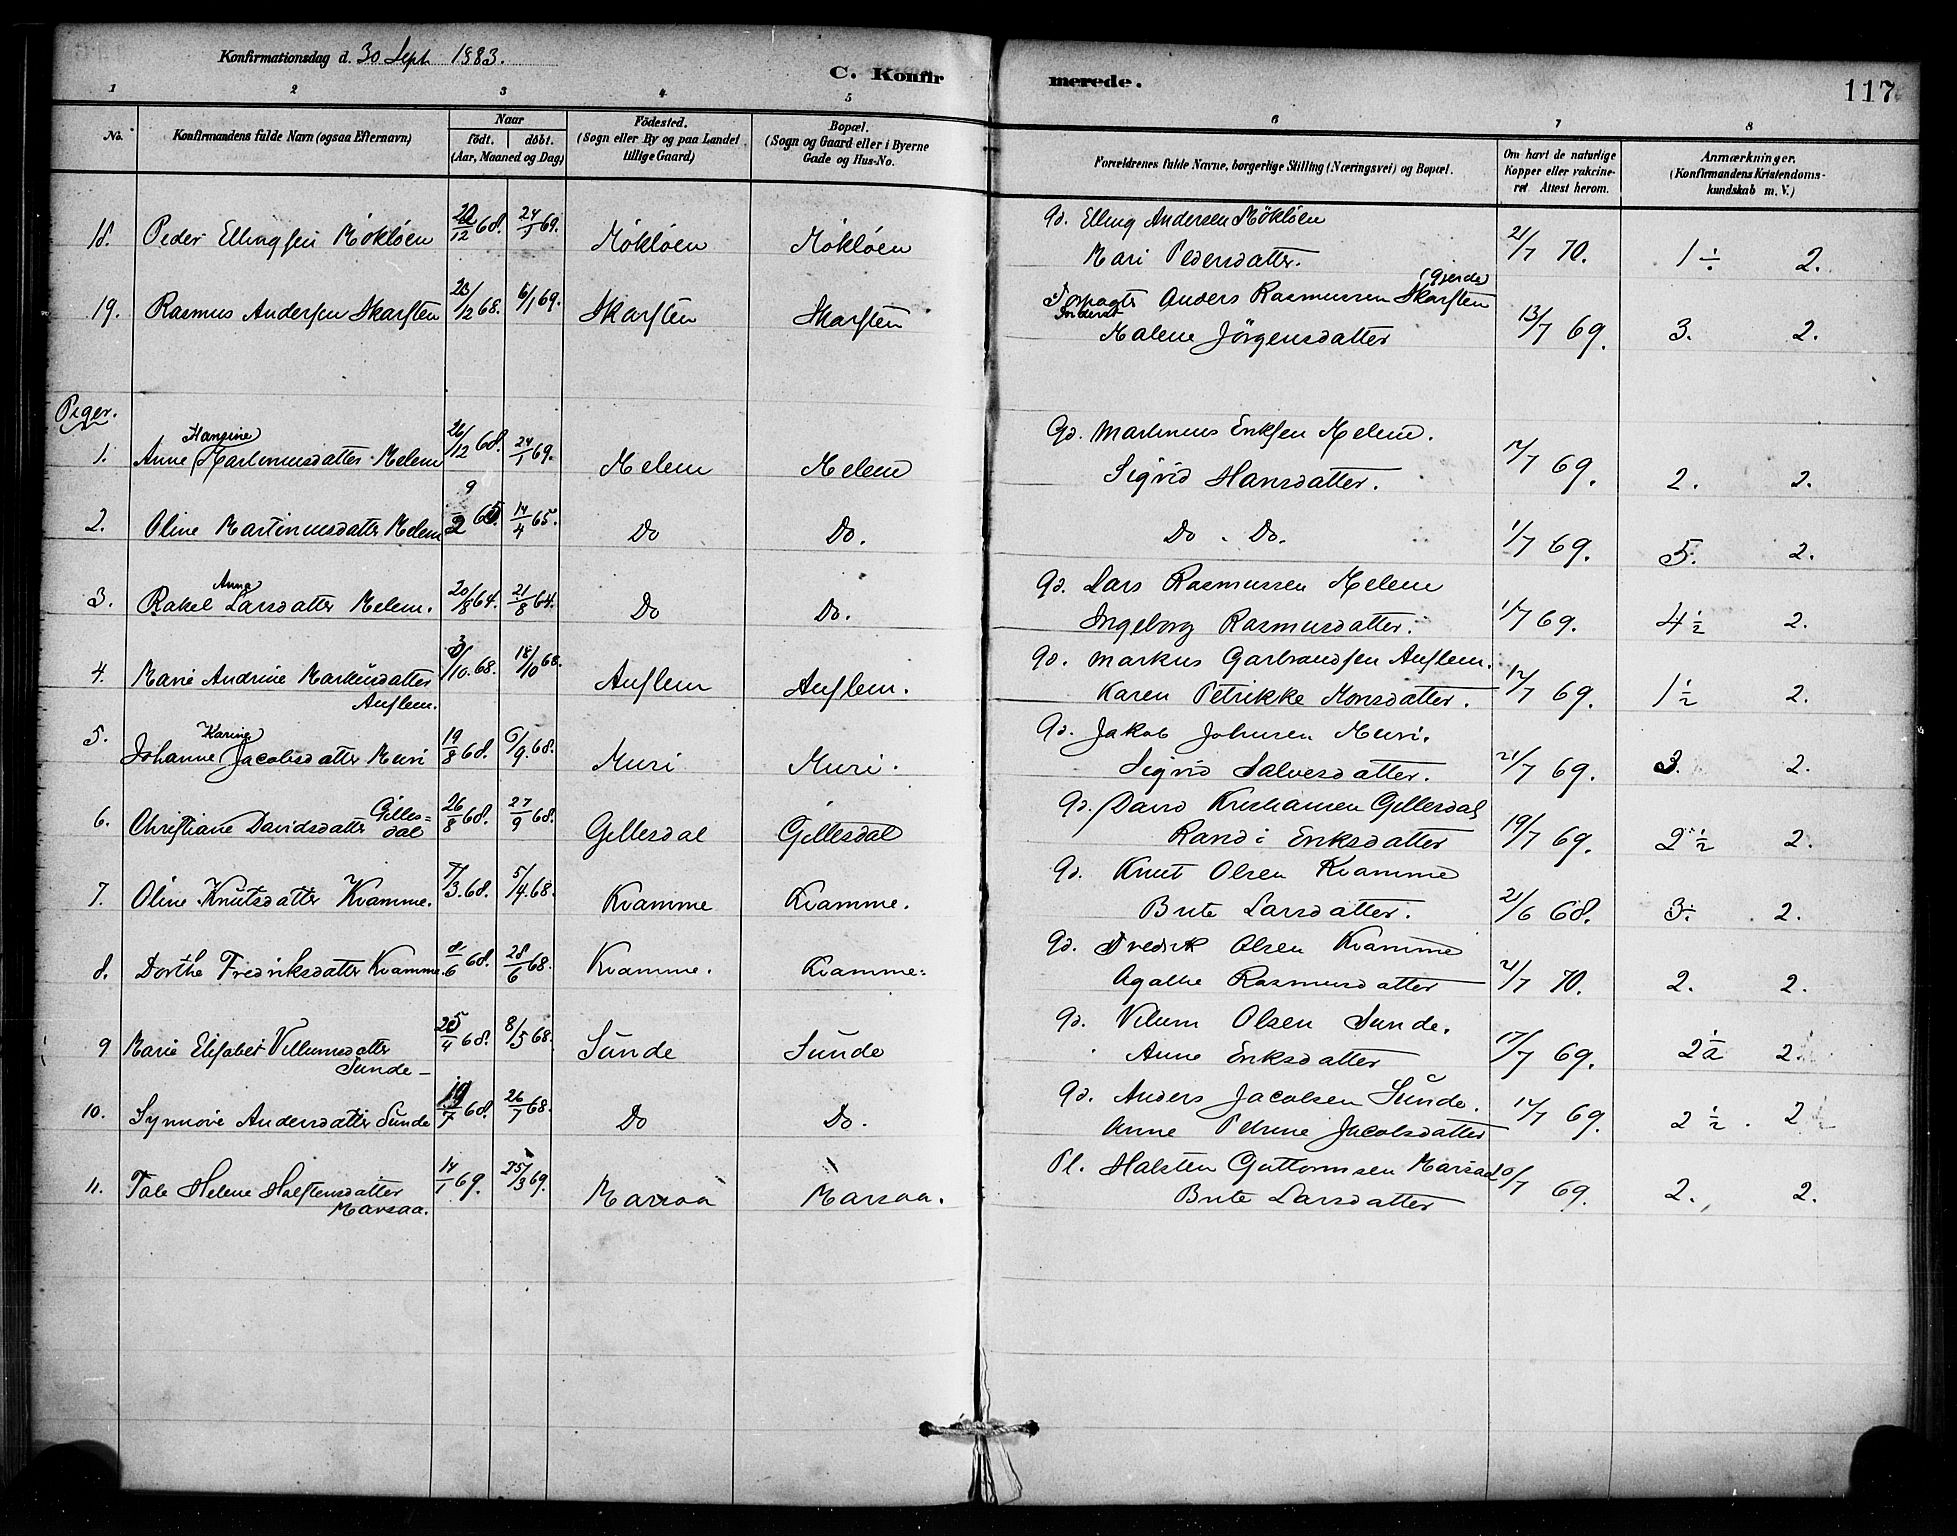 Konfirmationsdag d. 30 Sept. 1883.
C. Konfirmerede.
117
1 2 3 4 5 6 7 8
No.
Konfirmandens fulde Navn (ogsaa Efternavn)
Naar
födt. döbt.
(Aar, Maaned og Dag)
Födested.
(Sogn eller By og paa Landet tillige Gaard)
Bopæl.
(Sogn og Gaard eller i Byerne Gade og Hus-No.
Forældrenes fulde Navne, borgerlige Stilling (Næringsvei) og Bopæl.
Om havt de naturlige Kopper eller vakcineret Attest herom.
Anmærkninger.
(Konfirmandens Kristendomskundskab m. V.)
18. Peder Ellingsen Mökløen 20/12 68. 24/1 69. Mökløen Mökløen Gd. Elling Andersen Mökløen
Mari Pedersdatter. 21/7 70. 1 ÷ 2.
19. Rasmus Andersen Skarsten 23/12 68. 6/1 69. Skarsten Skarsten Anders Rasmussen Skarsten (Gjerde)
Malene Jörgensdatter 13/7 69. 3. 2.
Piger.
1. Anne Hansine Martinusdatter Melem 26/12 68. 24/1 69. Melem Melem Gd. Martinus Eriksen Melem.
Sigrid Hansdatter. 17/7 69. 2. 2.
2. Oline Martinusdatter Melem 9/2 65. 14/4 65. Do Do. Do. Do. 1/7 69. 5. 2.
3. Rakel Anna Larsdatter Melem. 20/8 64. 21/8 64. Do Do. Gd. Lars Rasmussen Melem
Ingeborg Rasmusdatter. 17/7 69. 4 1/2 2.
4. Marie Andrine Markusdatter
Auflem. 3/10. 68. 18/10 68. Auflem Auflem. Gd. Markus Garbrandsen Auflem.
Karen Petrikke Monsdatter. 17/7 69. 1 1/2 2.
5. Johanne Karine Jacobsdatter Muri 19/8 68. 6/9. 68. Muri Muri. Gd. Jakob Johnsen Muri.
Sigrid Salvesdatter. 21/7 69. 3. 2.
6. Christiane Davidsdatter Gillesdal 26/8 68. 27/9 68. Gillesdal Gillesdal Gd. David Kristiansen Gillesdal
Randi Eriksdatter 19/7 69. 2 1/2 2.
7. Oline Knutsdatter Kvamme. 7/3. 68. 5/4. 68. Kvamme Kvamme. Gd. Knut Olsen Kvamme
Brite Larsdatter. 21/6 68. 3. 2.
8. Dorthe Fredriksdatter Kvamme 8/6 68. 28/6 68. Kvamme. Kvamme. Gd. Fredrik Olsen Kvamme
Agathe Rasmusdatter 21/7 70. 2. 2.
9 Marie Elisabet Villumsdatter
Sunde 25/4 68. 8/5 68. Sunde Sunde Gd. Vilum Olsen Sunde.
Anne Eriksdatter 17/7 69. 2 1/2 2
10. Synnove Andersdatter Sunde 19/7 68. 26/7 68. Do Do. Gd. Anders Jacobsen Sunde.
Anne Petrine Jacobsdatter 17/7 69. 2 1/2. 2
11. Tale Helene Halstensdatter
Marsaa. 14/1 69. 25/3 69. Marsaa Marsaa. Pl. Halsten Guttormsen Marsaa
Brite Larsdatter 69. 2. 2.